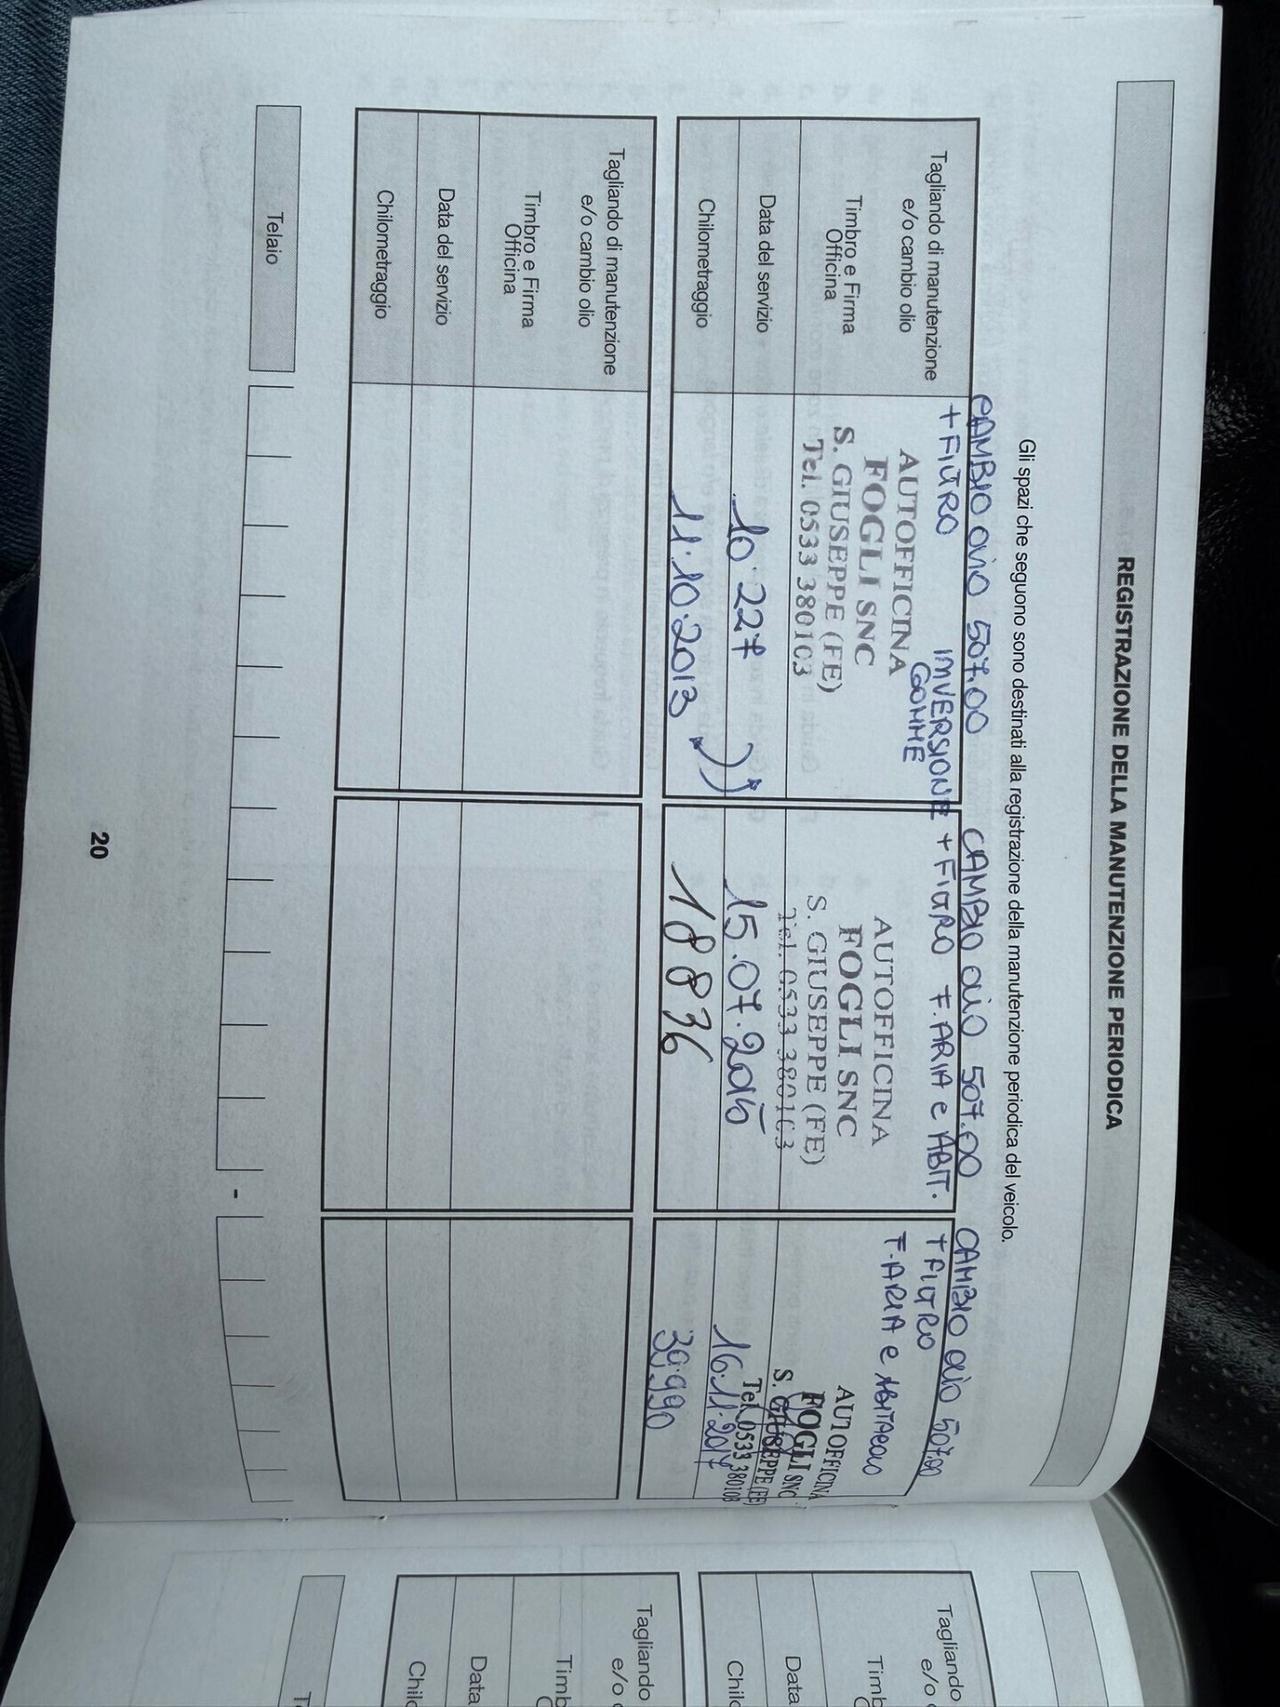 REGISTRAZIONE DELLA MANUTENZIONE PERIODICA
Gli spazi che seguono sono destinati alla registrazione della manutenzione periodica del veicolo.
Tagliando di manutenzione
e/o cambio olio
Timbro e Firma
Officina
Data del servizio
Chilometraggio
CAMBIO OLIO 507.00
+ FILTRO
INVERSIONE
GOMME
AUTOFFICINA
FOGLI SNC
S. GIUSEPPE (FE)
Tel. 0533 380103
10.227
11.10.2013
CAMBIO OLIO 507.00
+ FILTRO F. ARIA e ABIT.
AUTOFFICINA
FOGLI SNC
S. GIUSEPPE (FE)
Tel. 0533 380103
15.07.2015
18836
CAMBIO OLIO 507.00
+ FILTRO
F. ARIA e ABITACOLO
AUTOFFICINA
FOGLI SNC
S. GIUSEPPE (FE)
Tel. 0533 380103
16.11.2017
39.990
Tagliando di manutenzione
e/o cambio olio
Timbro e Firma
Officina
Data del servizio
Chilometraggio
Telaio
-
20
Tagliando
e/o
Timb
Data
Chil
Tagliando
e/o
Timb
Data
Chil
T